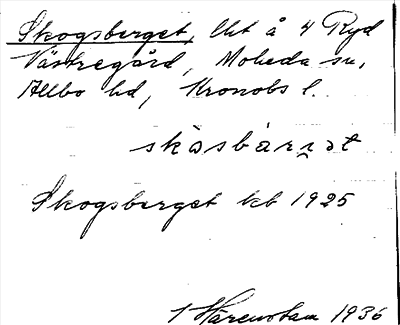 Skogsberget, lht å 4 Ryd
Västregård, Moheda sn,
Allbo hd, Kronobs l.
skåsbärɪ̯ət
Skogsberget kb 1925
Härenstam 1936